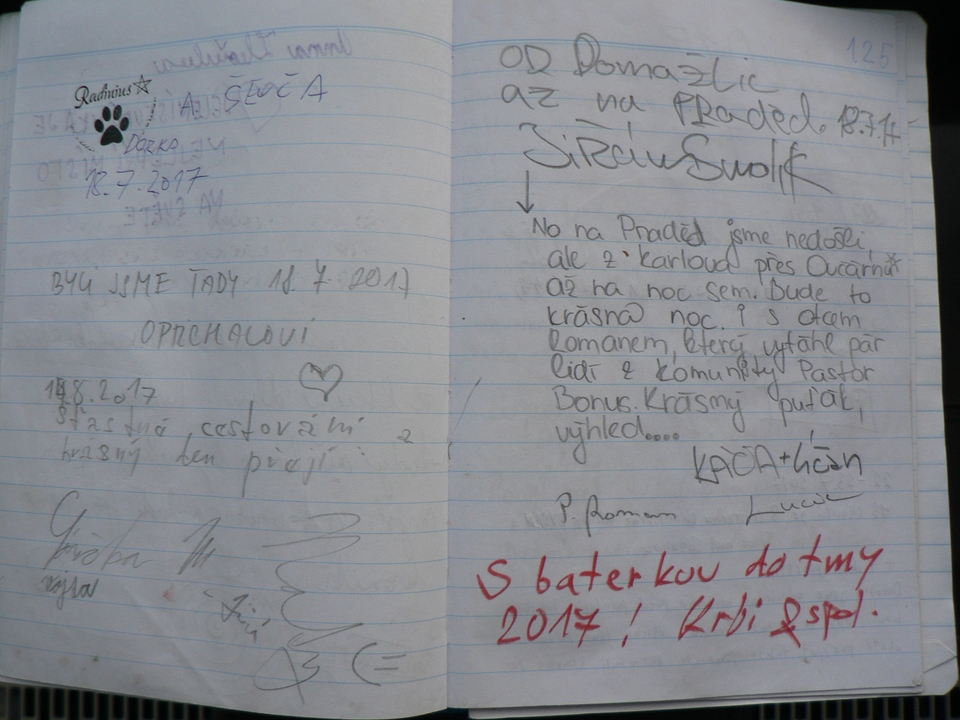 Radnius
A ŠEVČA
DÁZKA
18.7.2017
BYLI JSME TADY 18 7 2017
OPŘICHALOVI
18.8.2017
šťastné cestování a
krásný den přejí
125
OD Domažlic
až na PRaděd. 18.7.17
Smolík
No na Praděd jsme nedošli,
ale z Karlova přes Ovčárnu
až na noc sem. Bude to
krásná noc. I s otcem
Romanem, který vytáhl pár
lidí z komunity Pastor
Bonus. Krásný puťák,
výhled....
KÁČA+
P. Roman Lucie
S baterkou do tmy
2017! Krbi & spol.